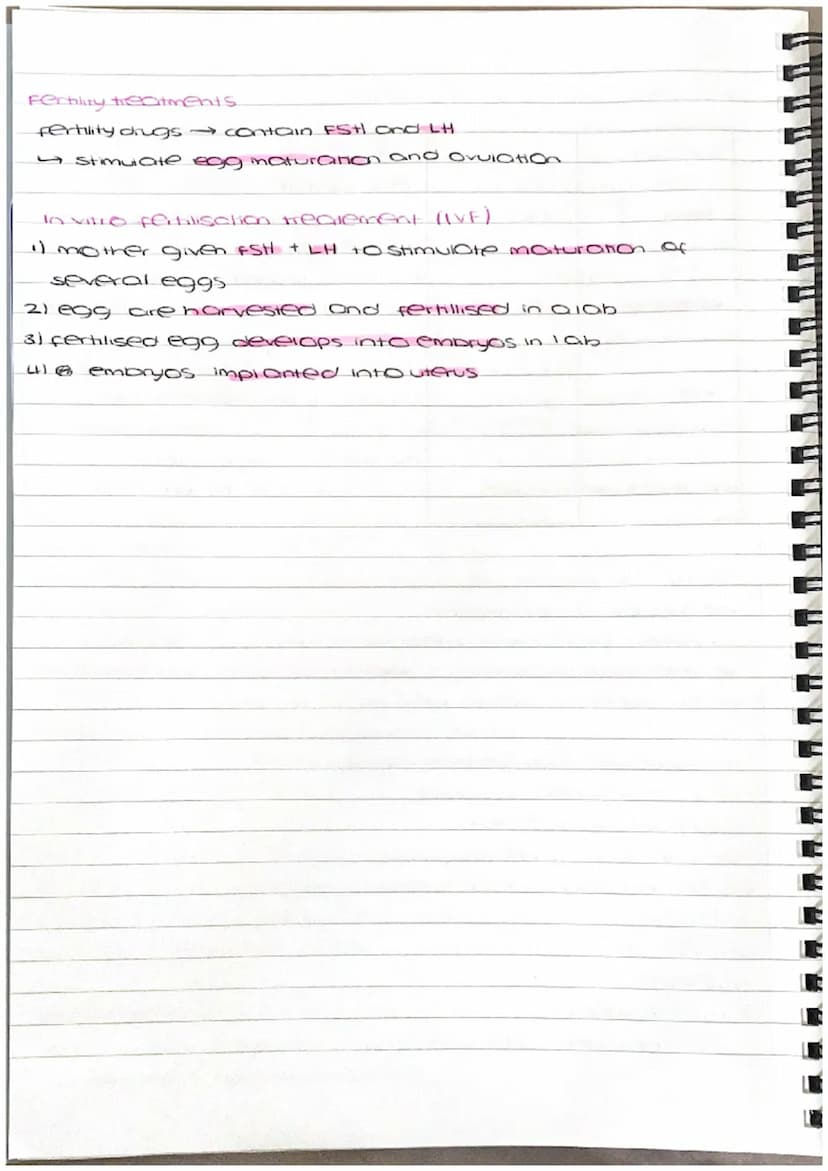 Fertility treatments
fertility drugs → contain FSH and LH
↳ stimulate egg maturation and ovulation
In vitro fertilisation treatement (IVF)
1) mother given FSH + LH to stimulate maturation of
several eggs
2) egg are harvested and fertillised in a lab
3) fertilised egg develops into embryos in lab
4) embryos implanted into uterus